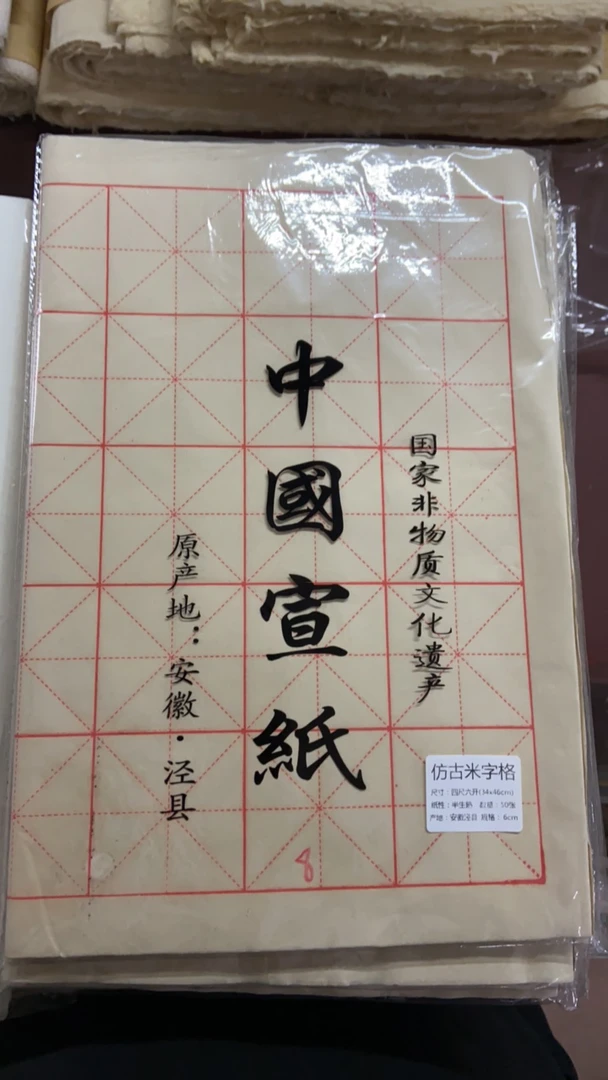 国家非物质文化遗产
中國宣紙
原产地：安徽·泾县
仿古米字格
尺寸：四尺六开(34x46cm)
纸性：半生熟 数量：50张
产地：安徽泾县 规格：6cm
8